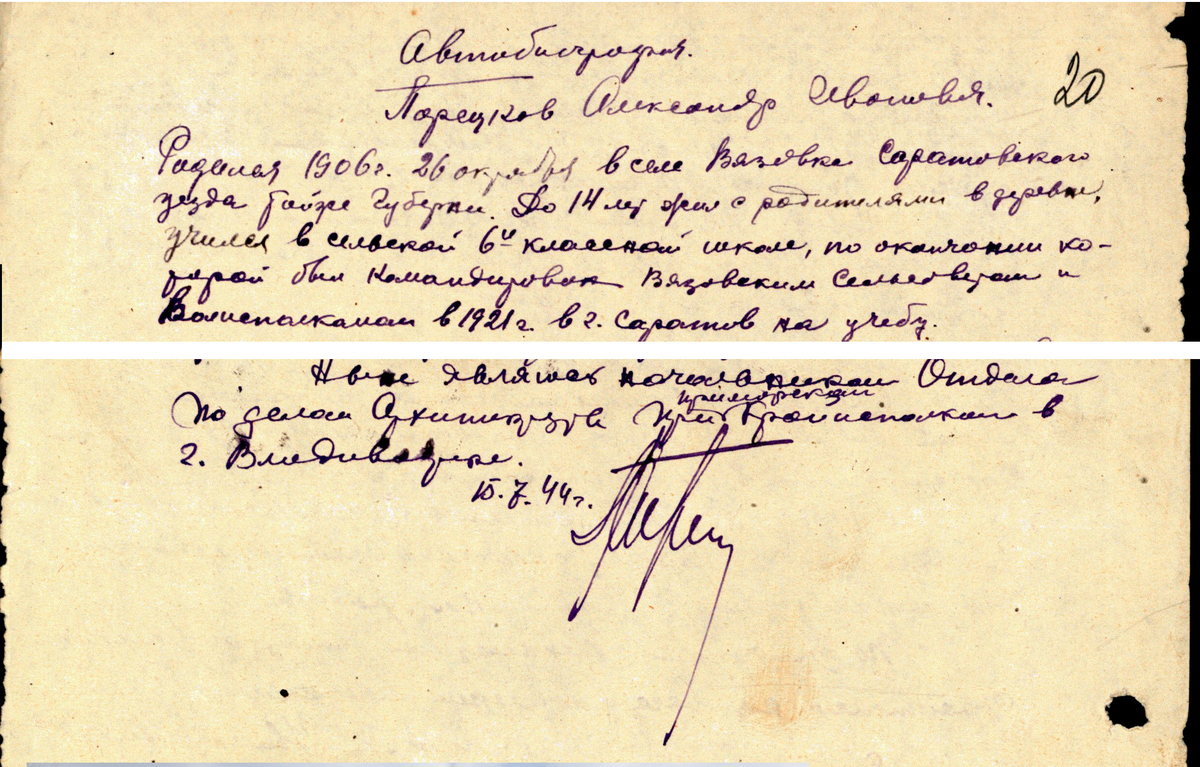 Автобиография.
20
Порецков Александр Иванович.
Родился 1906г. 26 октября в селе Вязовка Саратовского
уезда той же Губернии. До 14 лет жил с родителями в деревне,
учился в сельской 6и классной школе, по окончании ко-
торой был командирован Вязовским Сельсоветом и
Волисполкомом в 1921г. в г. Саратов на учебу.
Ныне являюсь начальником Отдела
по делам Архитектуры при Приморском Крайисполкоме в
г. Владивостоке.
15.7.44г.